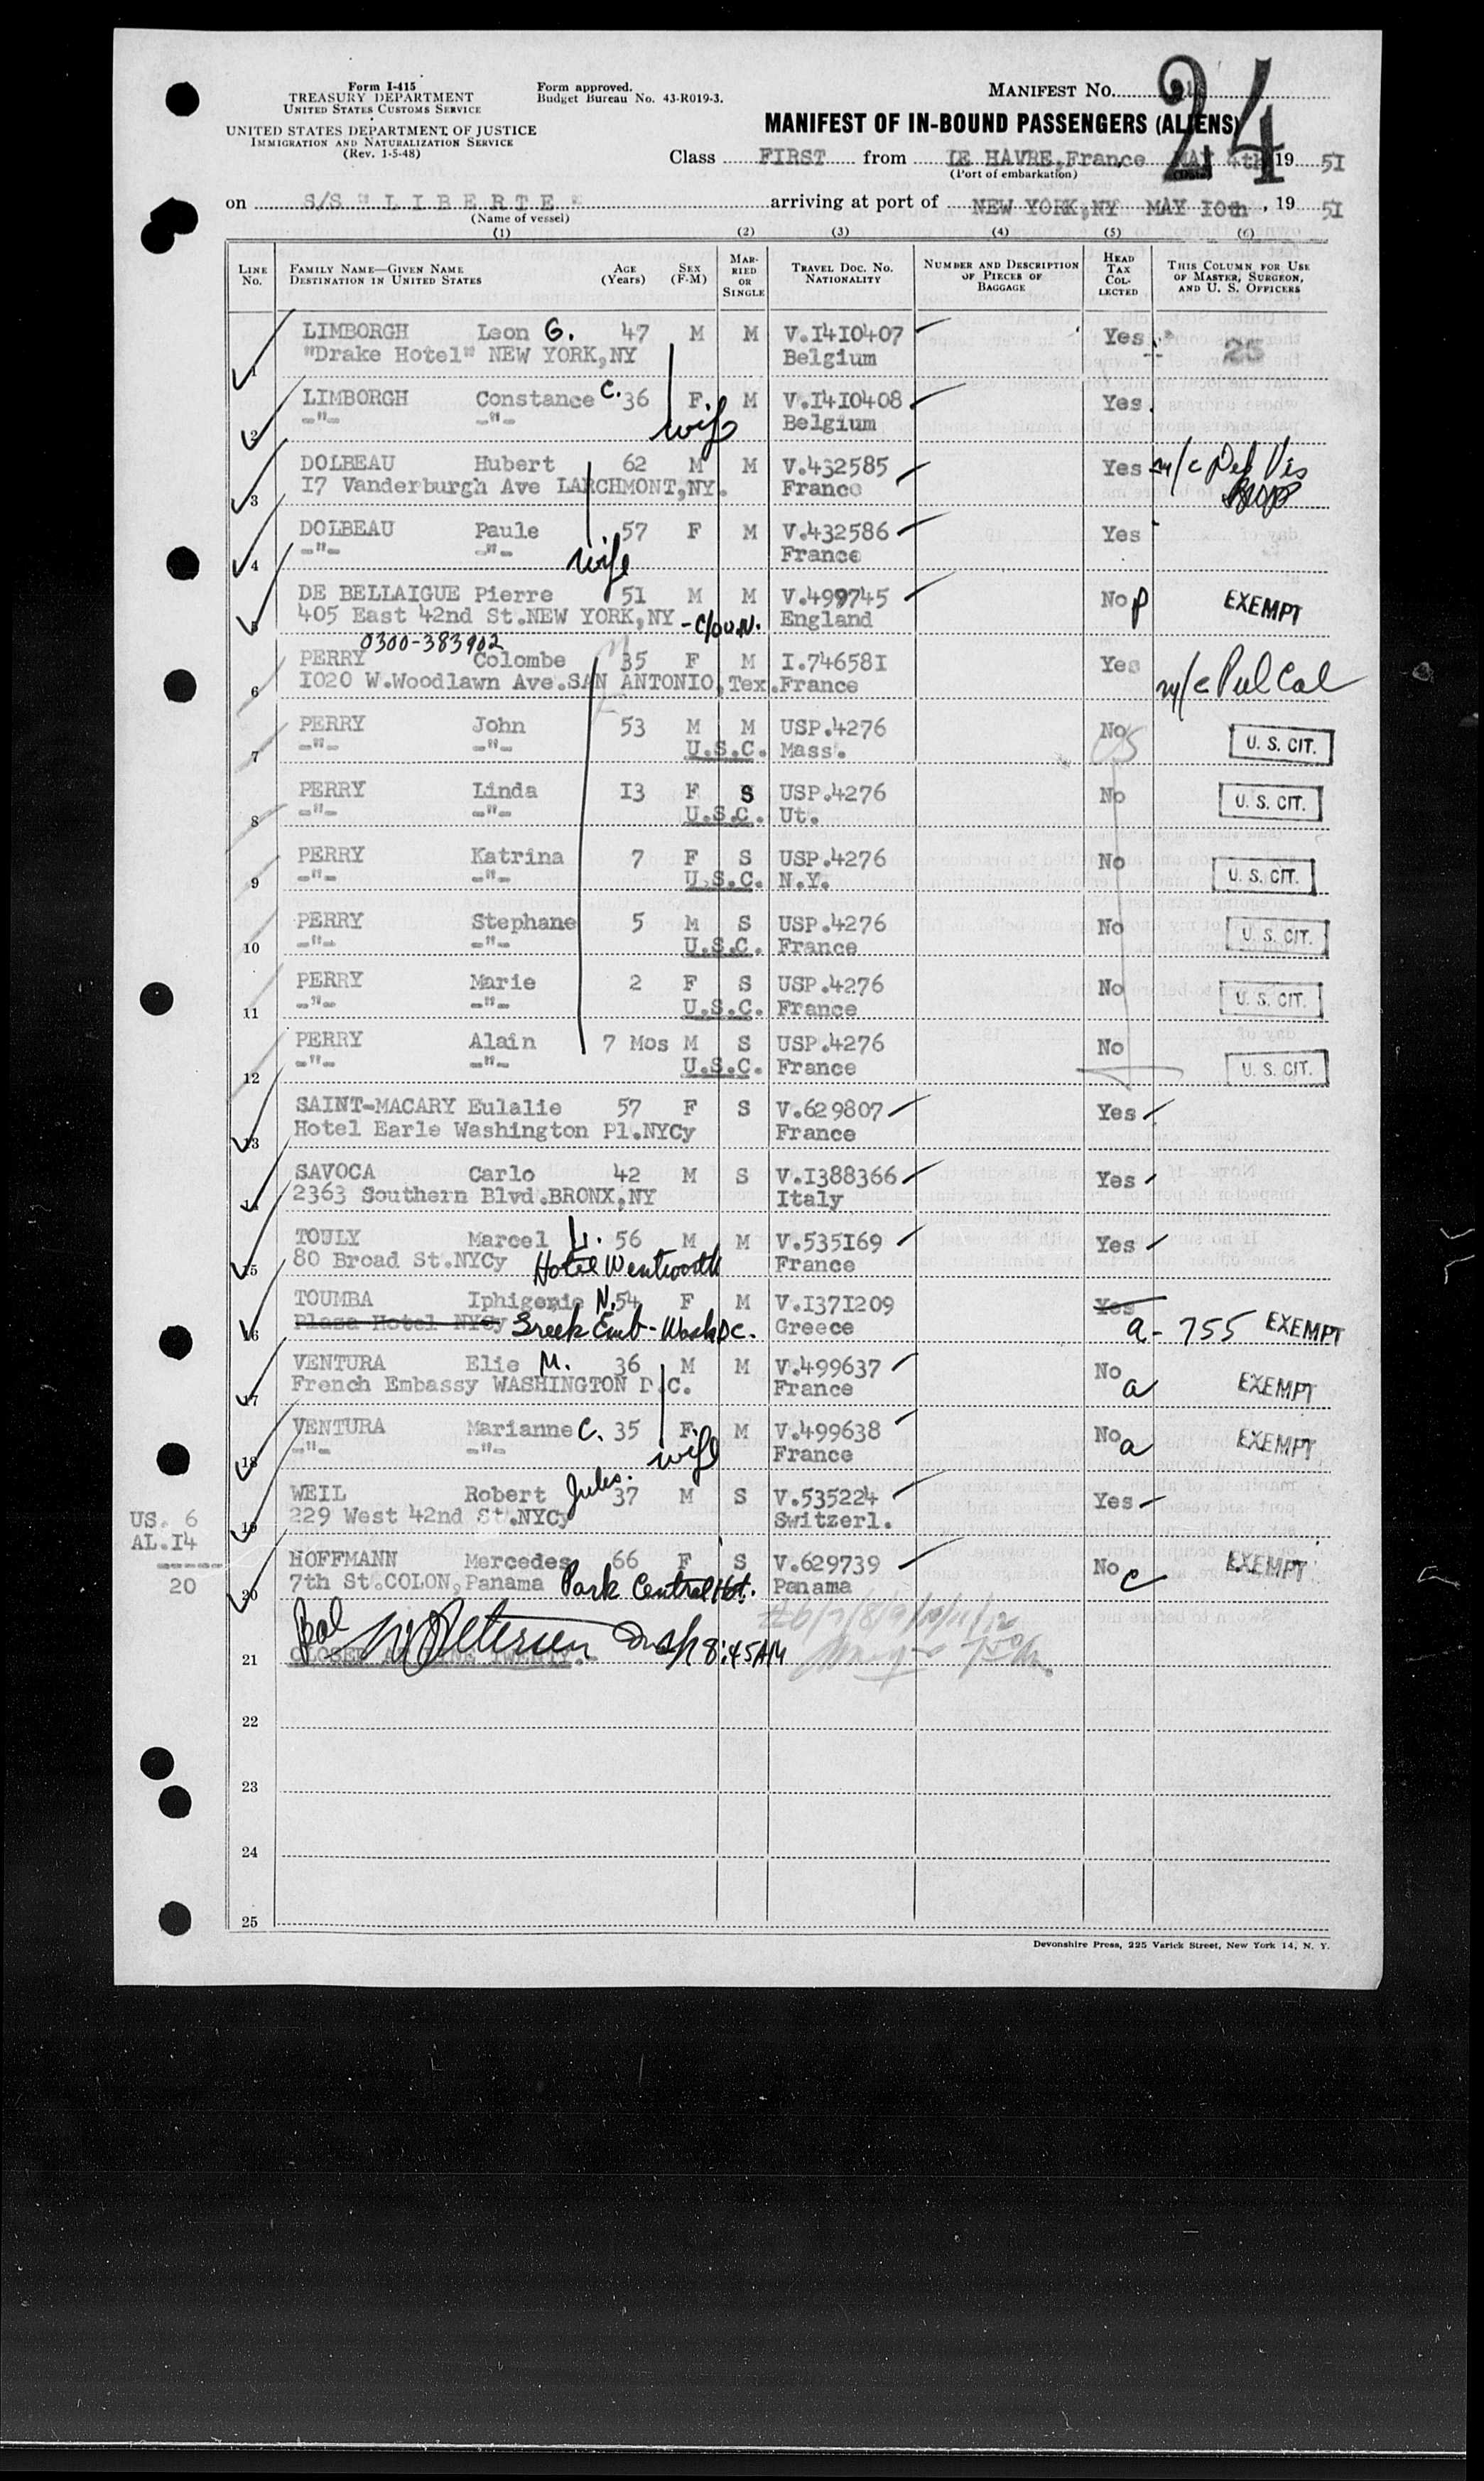 Form I-415
TREASURY DEPARTMENT
UNITED STATES CUSTOMS SERVICE
UNITED STATES DEPARTMENT OF JUSTICE
IMMIGRATION AND NATURALIZATION SERVICE
(Rev. 1-5-48)
Form approved.
Budget Bureau No. 43-R019-3.
MANIFEST NO.
24
MANIFEST OF IN-BOUND PASSENGERS (ALIENS)
Class FIRST from LE HAVRE,France MAY 4th 19 51
(Port of embarkation)
on S/S " L I B E R T E " arriving at port of NEW YORK,NY MAY IOth , 19 51
(Name of vessel)
(1) (2) (3) (4) (5) (6)
LINE No. FAMILY NAME—GIVEN NAME DESTINATION IN UNITED STATES AGE (Years) SEX (F-M) MARRIED OR SINGLE TRAVEL DOC. NO. NATIONALITY NUMBER AND DESCRIPTION OF PIECES OF BAGGAGE HEAD TAX COLLECTED THIS COLUMN FOR USE OF MASTER, SURGEON, AND U. S. OFFICERS
1 LIMBORGH Leon G. 47 M M V.I4I0407 Yes 25
"Drake Hotel" NEW YORK,NY Belgium
2 LIMBORGH Constance C. 36 F. M V.I4I0408 Yes.
-"- -"- wife Belgium
3 DOLBEAU Hubert 62 M M V.432585 Yes
I7 Vanderburgh Ave LARCHMONT,NY. France
4 DOLBEAU Paule 57 F M V.432586 Yes
-"- -"- wife France
5 DE BELLAIGUE Pierre 51 M M V.499745 No p EXEMPT
405 East 42nd St.NEW YORK,NY - c/o U.N. England
0300-383902
6 PERRY Colombe 35 F M I.74658I Yes
I020 W.Woodlawn Ave.SAN ANTONIO,Tex. France
7 PERRY John 53 M M USP.4276 No U. S. CIT.
-"- -"- U.S.C. Mass.
8 PERRY Linda I3 F S USP.4276 No U. S. CIT.
-"- -"- U.S.C. Ut.
9 PERRY Katrina 7 F S USP.4276 No U. S. CIT.
-"- -"- U.S.C. N.Y.
10 PERRY Stephane 5 M S USP.4276 No U. S. CIT.
-"- -"- U.S.C. France
11 PERRY Marie 2 F S USP.4276 No U. S. CIT.
-"- -"- U.S.C. France
12 PERRY Alain 7 Mos M S USP.4276 No U. S. CIT.
-"- -"- U.S.C. France
13 SAINT-MACARY Eulalie 57 F S V.629807 Yes
Hotel Earle Washington Pl.NYCy France
SAVOCA Carlo 42 M S V.I388366 Yes
2363 Southern Blvd.BRONX,NY Italy
15 TOULY Marcel L. 56 M M V.535I69 Yes
80 Broad St.NYCy Hotel Wentworth France
16 TOUMBA Iphigenie N. 54 F M V.I37I209 Yes
Plaza Hotel NYCy Greek Emb - Wash DC. Greece a - 755 EXEMPT
17 VENTURA Elie M. 36 M M V.499637 No a EXEMPT
French Embassy WASHINGTON D.C. France
18 VENTURA Marianne C. 35 F. M V.499638 No a EXEMPT
-"- -"- wife France
19 WEIL Robert Jules. 37 M S V.535224 Yes
229 West 42nd St.NYCy Switzerl.
US. 6
AL.I4
20
20 HOFFMANN Mercedes 66 F S V.629739 No c EXEMPT
7th St.COLON,Panama Park Central Hot. Panama
21 CLOSED AT LINE TWENTY.- Petersen Insp 8:45AM
22
23
24
25
Devonshire Press, 225 Varick Street, New York 14, N. Y.